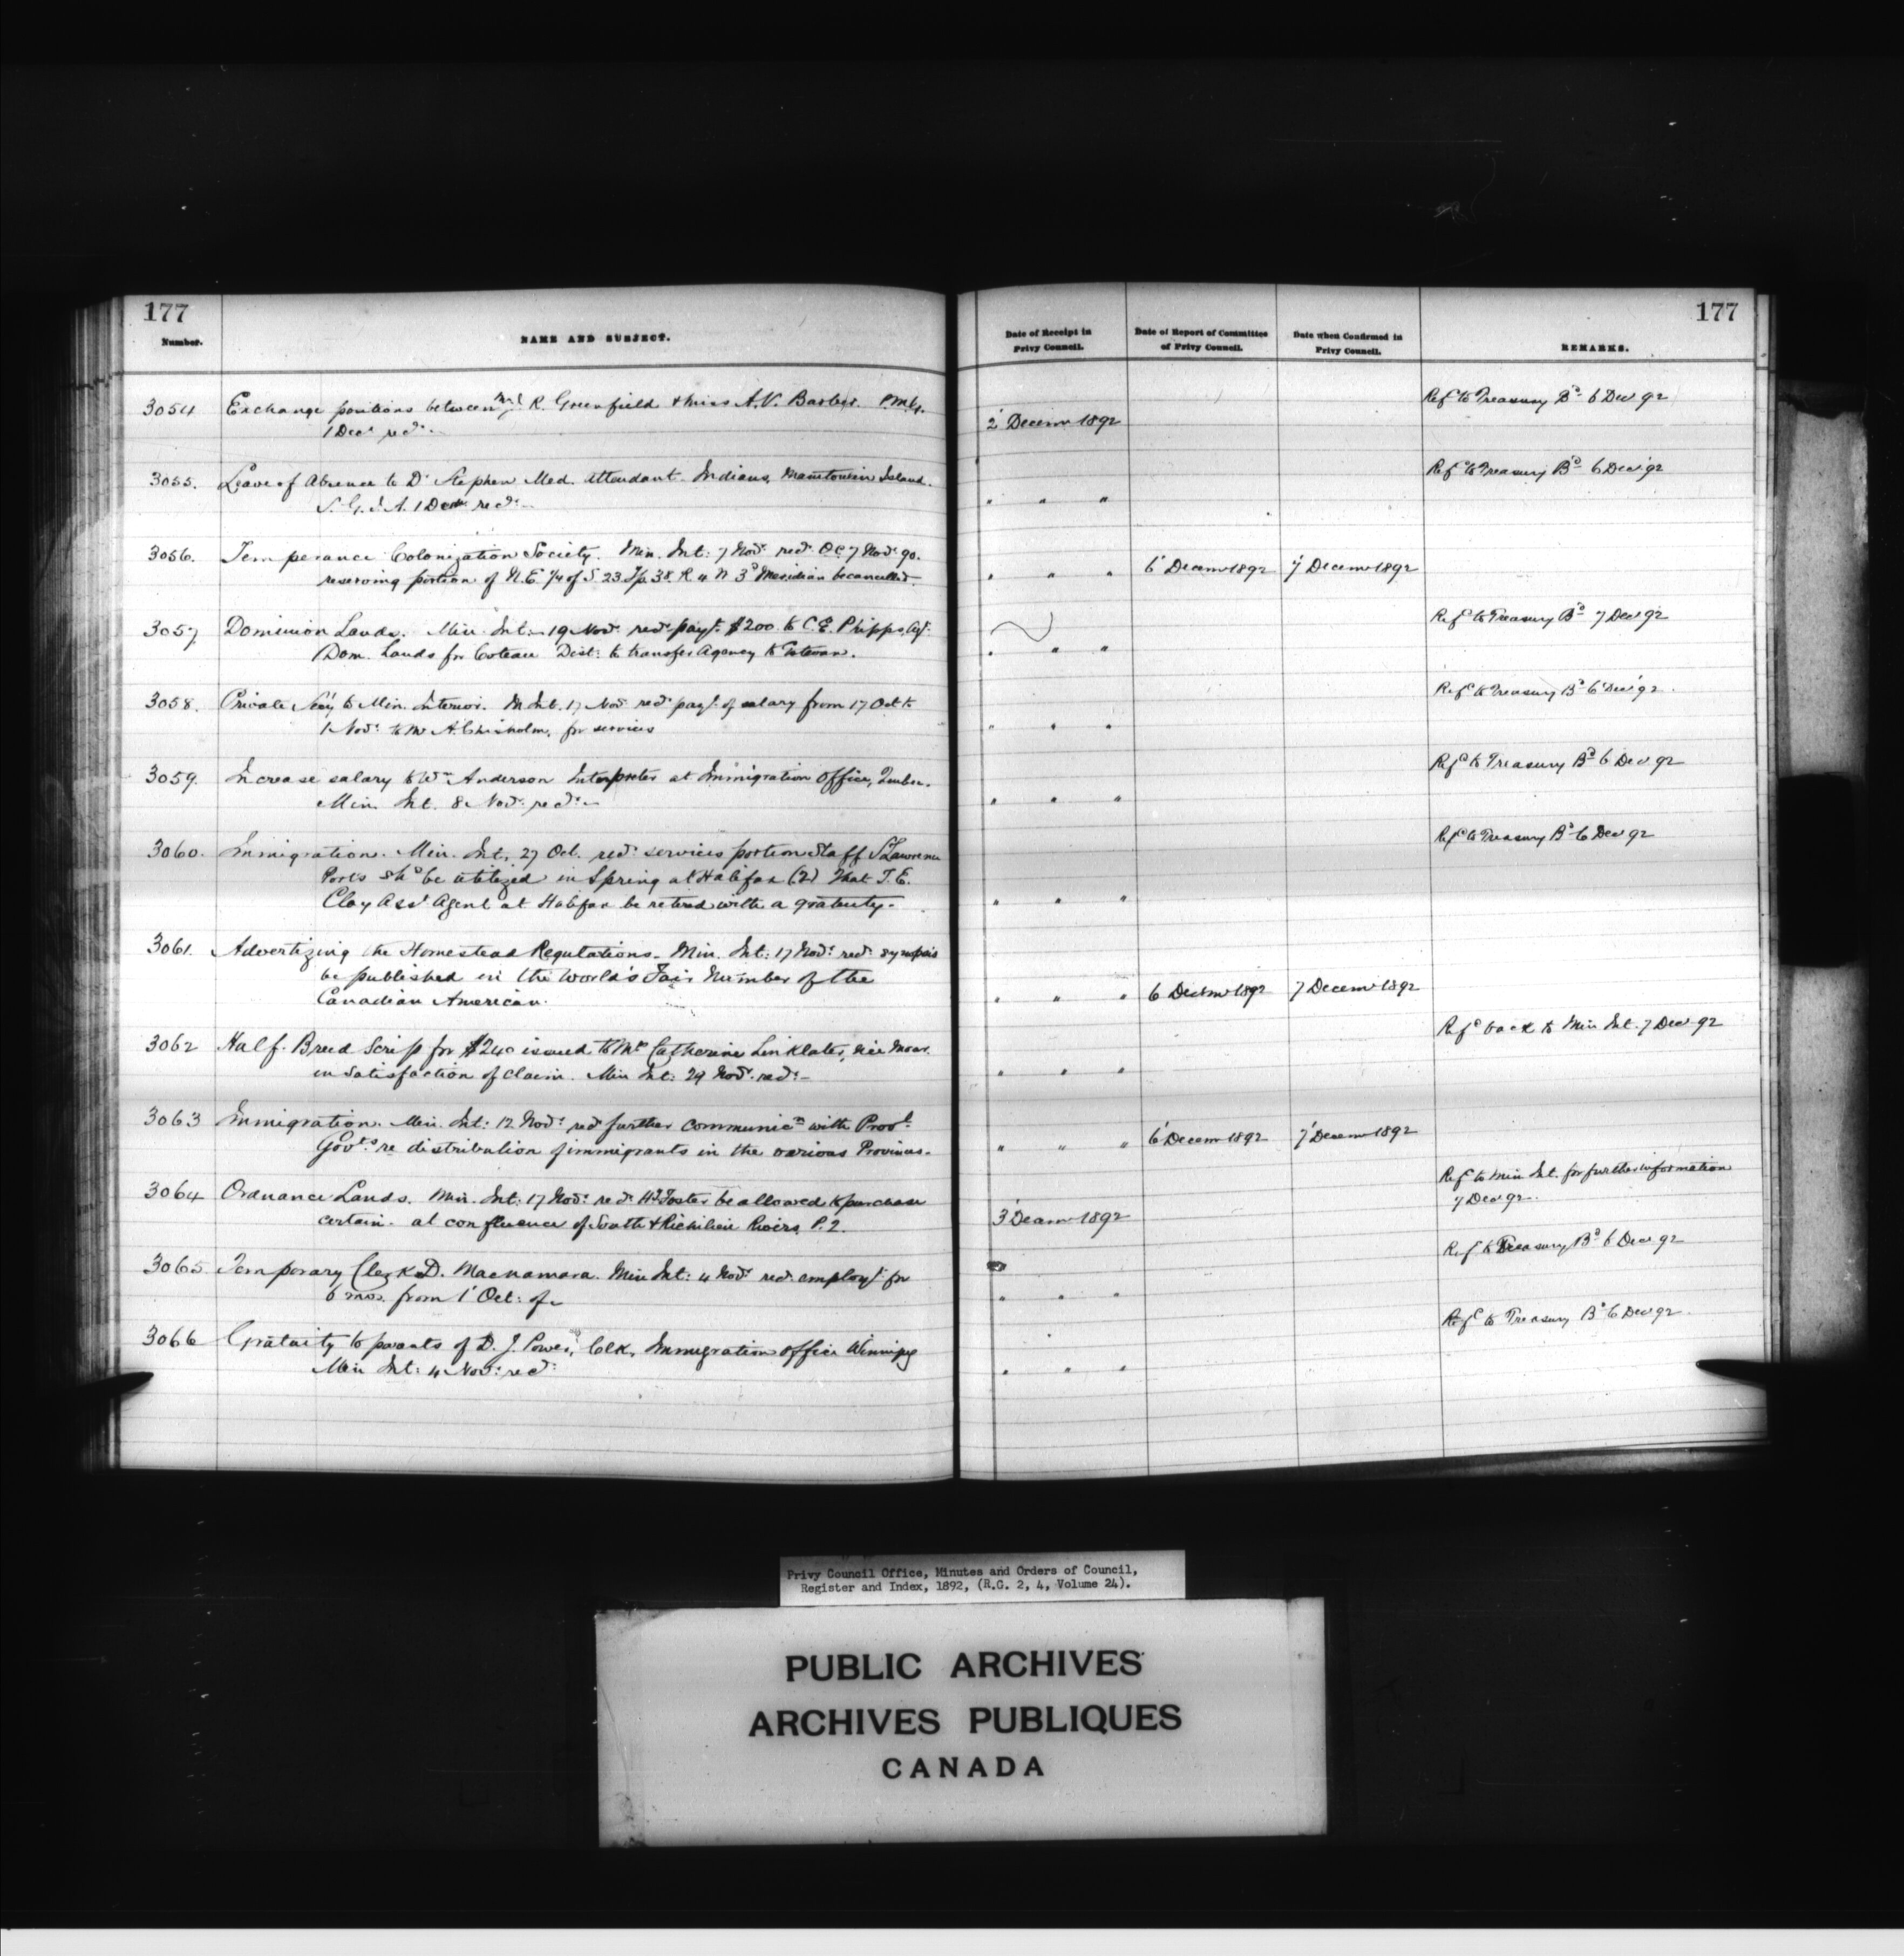 177
177
Number.
NAME AND SUBJECT.
Date of Receipt in Privy Council.
Date of Report of Committee of Privy Council.
Date when Confirmed in Privy Council.
REMARKS.
3054 Exchange positions between R. Greenfield & Miss A.V. Barber. P.M.G.
1 Decr recd.
2 Decemr 1892
Refd to Treasury Bd 6 Decr 92
3055. Leave of Absence to Dr Stephen Med. Attendant Indians, Manitowin Island.
S.G.I.A. 1 Decr recds
" " "
Refd to Treasury Bd 6 Decr 92
3056. Temperance Colonization Society. Min. Int: 7 Novr recds OC 7 Novr 90.
reserving portion of N.E. 1/4 of S. 23 Tp. 38. R 4 W 3d Meridian be cancelled.
" " "
6 Decemr 1892
7 Decemr 1892
3057 Dominion Lands. Min. Int: 19 Novr recds payt $200 to C.E. Phipps, Agt.
Dom. Lands for Coteau Dist: to transfer Agency to Estevan.
" " "
Refd to Treasury Bd 7 Decr 92
3058. Private Secy to Min. Interior. M. Int. 17 Novr recds payt of salary from 17 Oct to
1 Novr to Mr A. Chisholm, for services
" " "
Refd to Treasury Bd 6 Decr 92.
3059. Increase salary to Wm Anderson Interpreter at Immigration Office, Quebec.
Min Int. 8 Novr recds
" " "
Refd to Treasury Bd 6 Decr 92
3060. Immigration. Min. Int. 27 Oct. recds services portion Staff St Lawrence
Ports shd be utilized in Spring at Halifax (2) That T.E.
Clay Asst Agent at Halifax be retired with a gratuity.
" " "
Refd to Treasury Bd 6 Decr 92
3061. Advertizing the Homestead Regulations. Min. Int: 17 Novr recds synopsis
be published in the World's Fair Number of the
Canadian American.
" " "
6 Decemr 1892
7 Decemr 1892
3062 Half-Breed Scrip for $240 issued to Mrs Catherine Linklater, née Moar.
in satisfaction of claim. Min Int: 29 Novr recds
" " "
Refd back to Min Int. 7 Decr 92
3063 Immigration. Min. Int: 12 Novr recds further communicn with Provl
Govts re distribution of immigrants in the various Provinces.
" " "
6 Decemr 1892
7 Decemr 1892
3064 Ordnance Lands. Min. Int: 17 Novr recds Foster be allowed to purchase
certain at confluence of South & Richilieu Rivers. P.2.
3 Decemr 1892
Refd to Min Int. for further information
7 Decr 92.
3065 Temporary Clerk D. Macnamara. Min Int: 4 Novr recds employt for
6 mos. from 1 Oct: of
" " "
Refd to Treasury Bd 6 Decr 92
3066 Gratuity to parents of D. J. Power, Clk, Immigration Office Winnipeg
Min Int: 4 Novr recds
" " "
Refd to Treasury Bd 6 Decr 92.
Privy Council Office, Minutes and Orders of Council,
Register and Index, 1892, (R.G. 2, 4, Volume 24).
PUBLIC ARCHIVES
ARCHIVES PUBLIQUES
CANADA